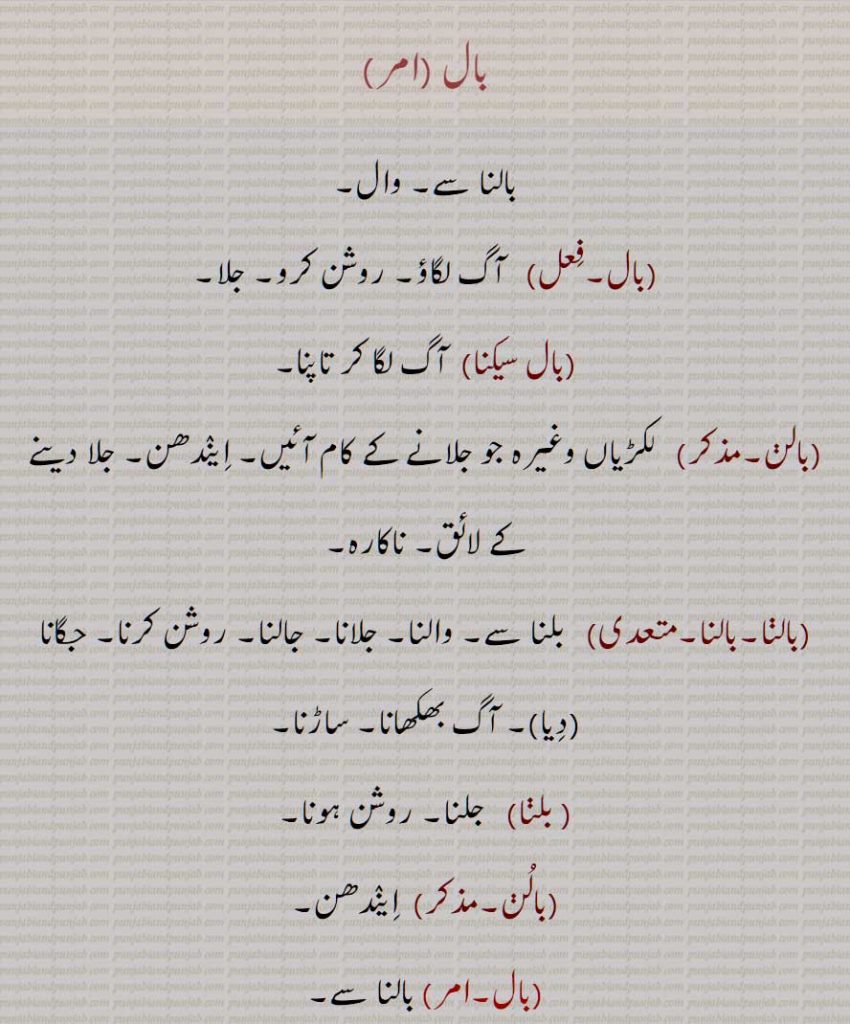 بال (امر)
بالنا سے۔ وال۔
(بال۔فِعل) آگ لگاؤ۔ روشن کرو۔ جلا۔
(بال سیکنا) آگ لگا کر تاپنا۔
(بالݨ۔مذکر) لکڑیاں وغیرہ جو جلانے کے کام آئیں۔ اِینْدھن۔ جلا دینے
کے لائق۔ ناکارہ۔
(بالݨا۔بالنا۔متعدی) بلنا سے۔ والنا۔ جلانا۔ جالنا۔ روشن کرنا۔ جگانا
(دِیا)۔ آگ بھکھانا۔ ساڑنا۔
( بلݨا) جلنا۔ روشن ہونا۔
(بالُݨ۔مذکر) اِینْدھن۔
(بال۔امر) بالنا سے۔